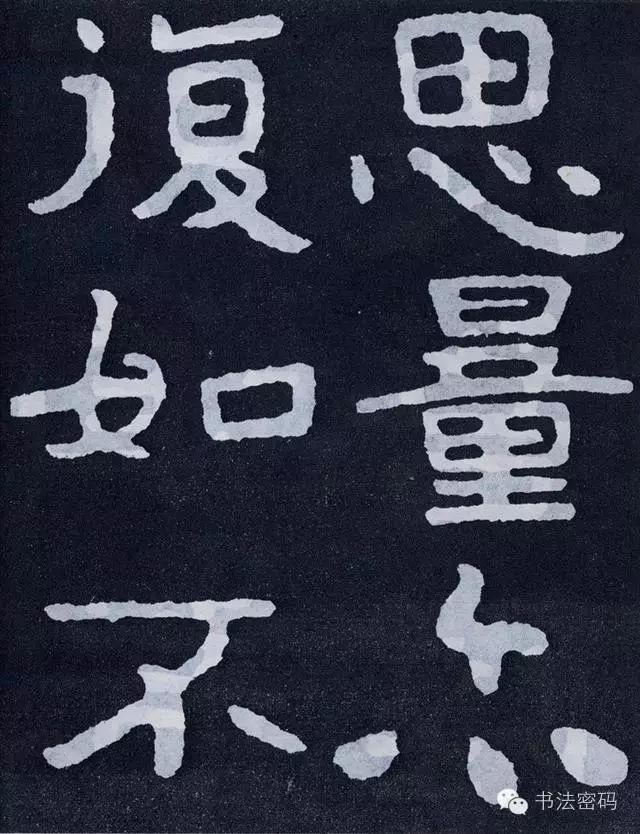 思量亦
復如不
书法密码